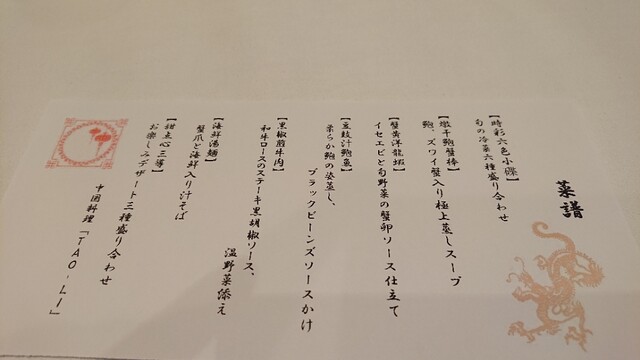 菜譜
【時彩六色小碟】
旬の冷菜六種盛り合わせ
【燉干鮑蟹棒】
鮑、ズワイ蟹入り極上蒸しスープ
【蟹黄洋龍蝦】
イセエビと旬野菜の蟹卵ソース仕立て
【豆豉汁鮑魚】
柔らか鮑の姿蒸し、
ブラックビーンズソースかけ
【黒椒煎牛肉】
和牛ロースのステーキ黒胡椒ソース、
温野菜添え
【海鮮湯麺】
蟹爪と海鮮入り汁そば
【甜点心三等】
お楽しみデザート三種盛り合わせ
中国料理「TAO-LI」